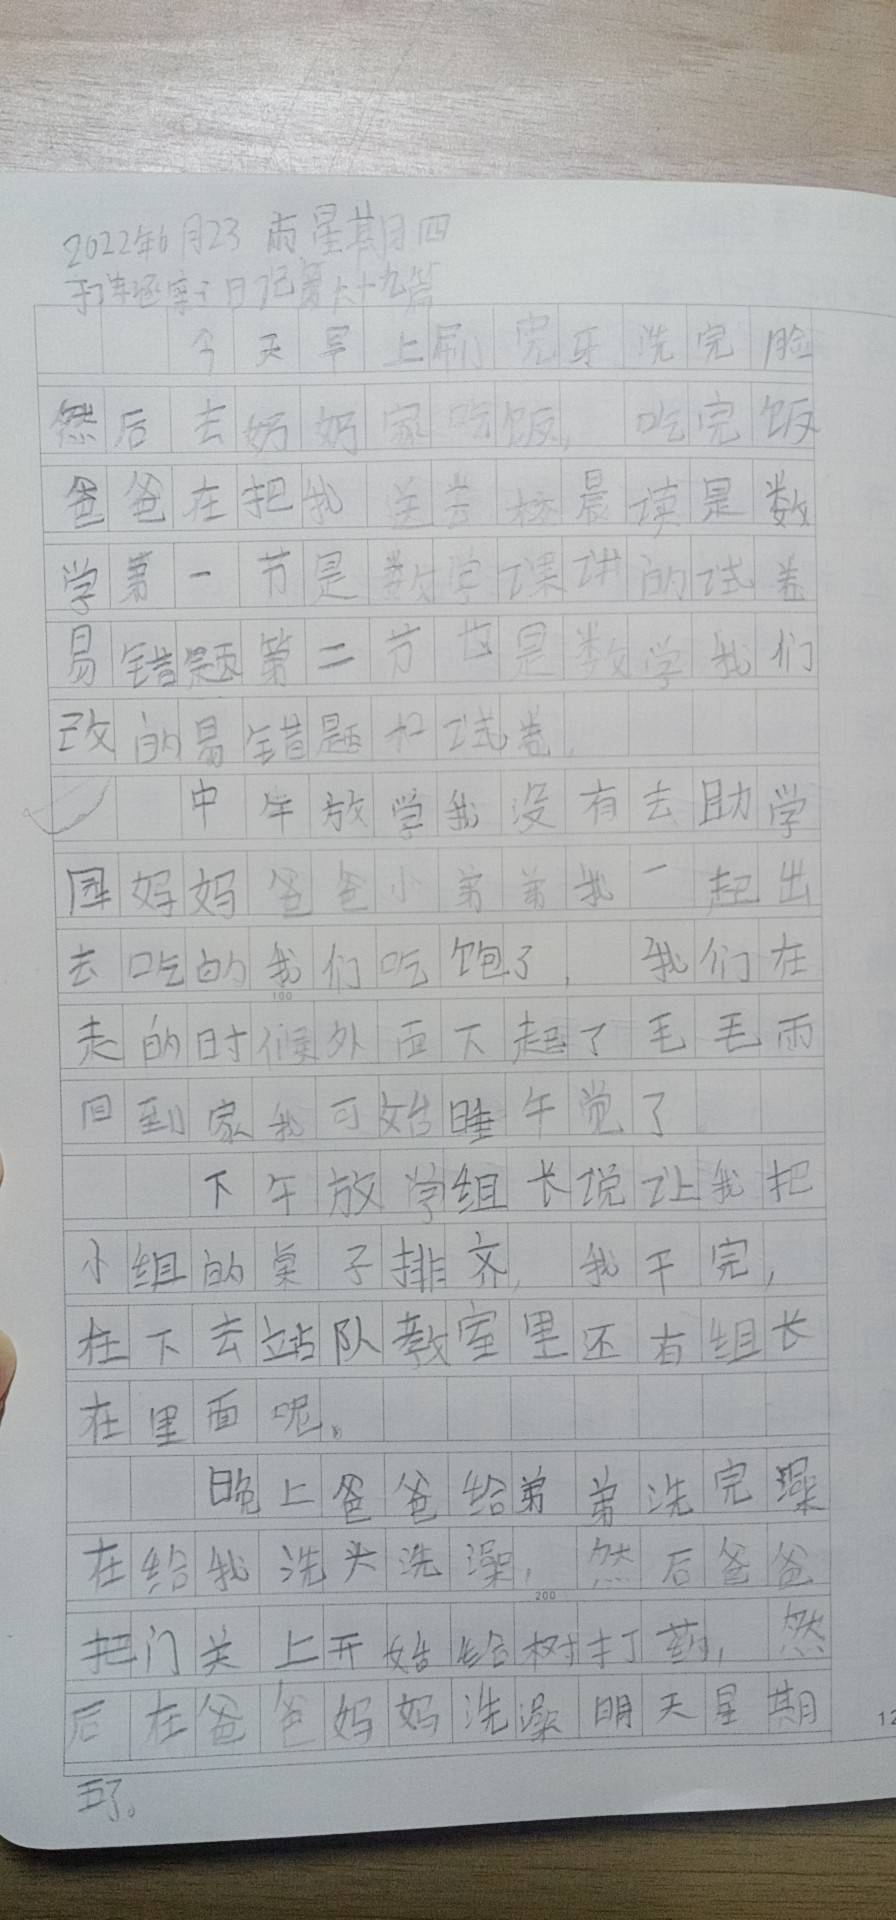 2022年6月23 雨星期四
日记第八十九篇
今天早上刷完牙洗完脸
然后去奶奶家吃饭,吃完饭
爸爸在把我送学校晨读是数
学第一节是数学课讲的试卷
易错题第二节也是数学我们
改的易错题和试卷,
中午放学我没有去助学
园妈妈爸爸小弟弟我一起出
去吃的我们吃饱了,我们在
走的时候外面下起了毛毛雨
回到家我可始睡午觉了
下午放学组长说让我把
小组的桌子排齐,我干完,
在下去站队教室里还有组长
在里面呢。
晚上爸爸给弟弟洗完澡
在给我洗头洗澡,然后爸爸
把门关上开始给树打药,然
后在爸爸妈妈洗澡明天星期
五了。
100
200
12